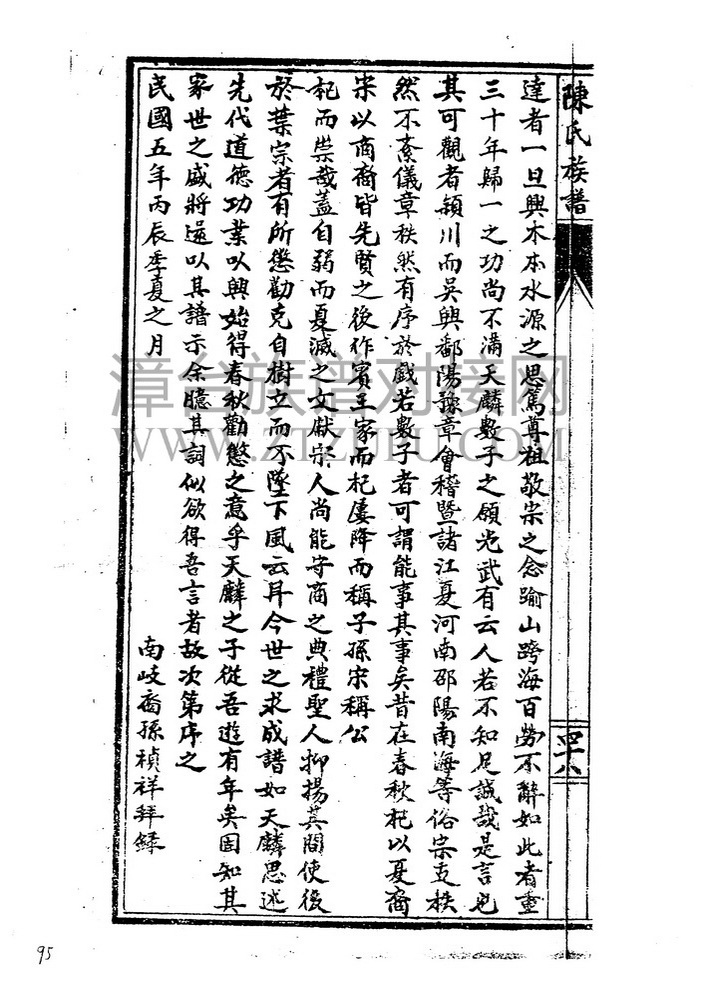 陳氏族譜
四十八
達者一旦興木本水源之思篤尊祖敬宗之念踰山跨海百勞不辭如此者垂
三十年歸一之功尚不滿天麟數子之願光武有云人若不知足誠哉是言也
其可觀者頴川而吳興鄱陽豫章會稽暨諸江夏河南邵陽南海等俗宗支秩
然不紊儀章秩然有序於戲若數子者可謂能事其事矣昔在春秋杞以夏裔
宋以商裔皆先賢之後作賓王家而杞屢降而稱子孫宋稱公
杞而祟哉蓋自弱而夏滅之文獻宗人尚能守商之典禮聖人抑揚其間使後
於葉宗者有所懲勸克自樹立而不墜下風云爾今世之求成譜如天麟思述
先代道德功業以興始得春秋勸懲之意乎天麟之子從吾遊有年矣固知其
家世之盛將還以其譜示余臆其詞似欲得吾言者故次第序之
民國五年丙辰季夏之月
南岐裔孫禎祥拜錄
漳台族谱对接网
WWW.ZTZUPU.COM
95